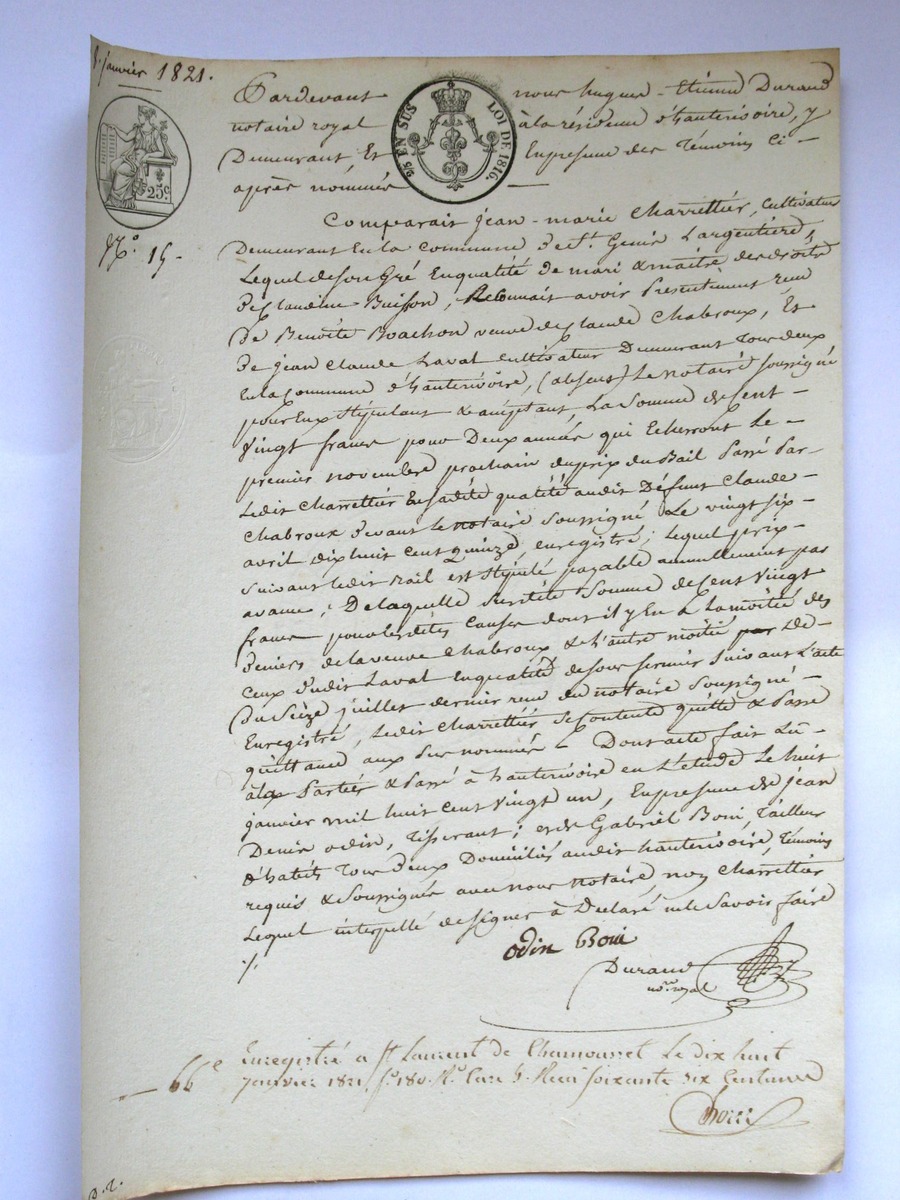 8 janvier 1821.
Pardevant nous hugues-Etienne Durand
notaire royal à la résidence d'hauterivoire, y
Demeurant, Et En presence des Témoins Ci-
après nommés
25 EN SUS LOI DE 1816.
25c
N.º 15.
Comparait jean-marie Charrettier, Cultivateur
Demeurant En la commune de St. Genis Largentiere,
Lequel de son Gré En qualité de mari & maitre des droits
de Claudine Buisson, Reconnait avoir Presentement reçu
de Benoite Boachon veuve de Claude Chabroux, Et
de jean Claude Laval Cultivateur Demeurant Tous deux
En la Commune d'hauterivoire, (absens) Le notaire soussigné
pour Eux Stipulant & acceptant, La Somme de Cent-
Vingt francs pour Deux années qui Echerront Le-
premier novembre prochain du prix du Bail Passé Par
Ledit Charrettier En sadite qualité audit Défunt Claude-
Chabroux devant le notaire soussigné Le vingt six-
avril dix huit Cent Quinze, enregistré; Lequel prix-
suivant ledit Bail est stipulé payable annuellement par
avance; De laquelle susdite Somme de Cent Vingt
francs pour les dites Causes dont il y En a La moitié des
deniers de la veuve Chabroux & L'autre moitié De-
Ceux dudit Laval En qualité de sous fermier Suivant L'acte
Du Seize juillet dernier reçu du notaire Soussigné-
Enregistré, Ledit Charrettier se Contente quitte & Passe
quittance aux Sus nommés - Dont acte fait Lu-
aux Parties & Passé à hauterivoire en L'etude Le huit
janvier mil huit Cent Vingt un, En presence de jean
Denis odin, Tisserant; et de Gabriel Boni, Tailleur
d'habits Tous deux Domiciliés audit hauterivoire, Témoins
requis & Soussignés avec nous notaire non Charrettier
Lequel interpellé de signer à Declaré ne le Savoir faire
odin Boni
Durand
no.re royal
66 c
Enregistré a St Laurent de Chamousset Le dix huit
janvier 1821 fo. 180. Ro. Case 5. Reçu soixante six Centimes